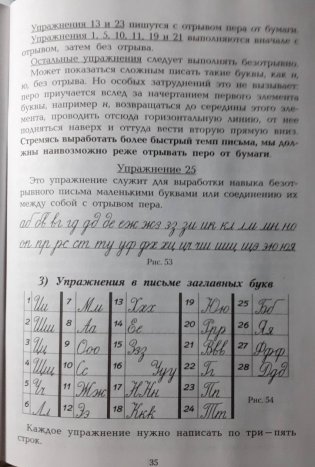 Упражнения 13 и 23 пишутся с отрывом пера от бумаги.
Упражнения 1, 5, 10, 11, 19 и 21 выполняются вначале с
отрывом, затем без отрыва.
Остальные упражнения следует выполнять безотрывно.
Может показаться сложным писать такие буквы, как н,
ю, без отрыва. Но особых затруднений это не вызывает:
перо приучается вслед за начертанием первого элемента
буквы, например н, возвращаться до середины этого эле-
мента, проводить отсюда горизонтальную линию, от нее
подняться наверх и оттуда вести вторую прямую вниз.
Стремясь выработать более быстрый темп письма, мы дол-
жны наивозможно реже отрывать перо от бумаги.
Упражнение 25
Это упражнение служит для выработки навыка безот-
рывного письма маленькими буквами или соединению их
между собой с отрывом пера.
аб бв вг гд дд де еж жз зз зи ик кл лм мн но
оп пр рс ст ту уф фх хц цч чш шщ щэ эю юя
Рис. 53
3) Упражнения в письме заглавных букв
1 Ии 7 Мм 13 Ххх 19 Юю 25 Бб
2 Шш 8 Аа 14 Ее 20 Ррр 26 Яя
3 Цц 9 Ооо 15 Ззз 21 Ввв 27 Ффф
4 Щщ 10 Сс 16 Ууу 22 Гг 28 Ддд
5 Чч 11 Жж 17 Ннн 23 Пп Рис. 54
6 Лл 12 Ээ 18 Ккк 24 Тт
Каждое упражнение нужно написать по три–пять
строк.
35